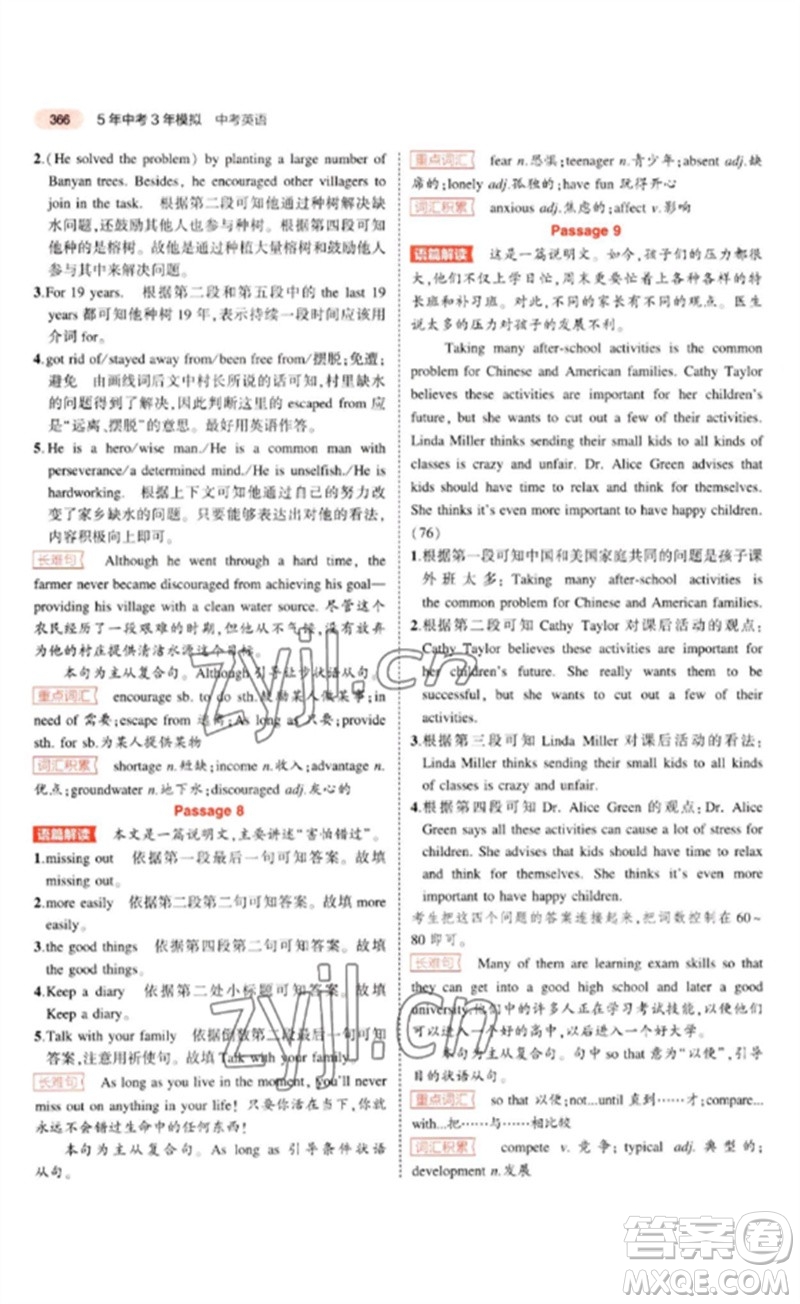 366 5年中考3年模拟 中考英语
2.(He solved the problem) by planting a large number of
Banyan trees. Besides, he encouraged other villagers to
join in the task. 根据第二段可知他通过种树解决缺
水问题,还鼓励其他人一起种树。根据第四段可知
他种的是榕树。故他通过种植大量榕树和鼓励其他
人来解决问题。
3.For 19 years. 根据第二段和第五段中的 the last 19
years 都可知他种树 19 年,表示持续一段时间应该用
介词 for。
4.got rid of/stayed away from/been free from/摆脱;免遭;
避免 由画线词后文中村长所说的话可知,村里缺水
的问题得到了解决,因此判断这里的 escaped from 应
是“远离、摆脱”的意思。最好用英语作答。
5.He is a hero/wise man./He is a man with
perseverance/a determined mind./He is unselfish./He is
hardworking. 根据上下文可知他经过多年的努力解
决了家乡缺水的问题。只要能够表达对他的看法,
内容积极向上即可。
长难句 Although he went through a hard time, the
farmer never became discouraged from achieving his goal—
providing his village with a clean water source. 尽管这个
农民经历了一段艰难的时期,但他从没有放弃
为他的村庄提供清洁水源这个目标。
本句为主从复合句。Although 引导让步状语从句。
重点词汇 encourage sb. to do sth.鼓励某人做某事;in
need of 需要;escape from 逃离;As long as 只要;provide
sth. for sb.为某人提供某物
词汇积累 shortage n.短缺;income n.收入;advantage n.
优点;groundwater n.地下水;discouraged adj.灰心的
Passage 8
语篇解读 本文是一篇说明文,主要讲述“害怕错过”。
1.missing out 依据第一段最后一句可知答案。故填
missing out。
2.more easily 依据第二段第二句可知答案。故填 more
easily。
3.the good things 依据第四段第二句可知答案。故填
the good things。
4.Keep a diary 依据第二处小标题可知答案。故填
Keep a diary。
5.Talk with your family 依据倒数第二段最后一句可知
答案,注意用祈使句。故填 Talk with your family。
长难句 As long as you live in the moment, you'll never
miss out on anything in your life! 只要你活在当下,你就
永远不会错过生命中的任何东西!
本句为主从复合句。As long as 引导条件状语
从句。
重点词汇 fear n.恐惧;teenager n.青少年;absent adj.缺
席的;lonely adj.孤独的;have fun 玩得开心
词汇积累 anxious adj.焦虑的;affect v.影响
Passage 9
语篇解读 这是一篇说明文。如今,孩子们的压力都很
大,他们不仅上学日忙,周末更忙,忙着上各种各样的特
长班和补习班。对此,不同的家长有不同的观点。医生
说太多的压力对孩子的发展不利。
Taking many after-school activities is the common
problem for Chinese and American families. Cathy Taylor
believes these activities are important for her children's
future, but she wants to cut out a few of the activities.
Linda Miller thinks sending their small kids to all kinds of
classes is crazy and unfair. Dr. Alice Green advises that
kids should have time to relax and think for themselves.
She thinks it's even more important to have happy children.
(76)
1.根据第一段可知中国和美国家庭共同的问题是孩子课
外班太多:Taking many after-school activities is
the common problem for Chinese and American families.
2.根据第二段可知 Cathy Taylor 对课后活动的观点:
Cathy Taylor believes these activities are important for
her children's future. She really wants them to be
successful, but she wants to cut out a few of their
activities.
3.根据第三段可知 Linda Miller 对课后活动的看法:
Linda Miller thinks sending their small kids to all kinds
of classes is crazy and unfair.
4.根据第四段可知 Dr. Alice Green 的观点:Dr. Alice
Green says all these activities can cause a lot of stress for
children. She advises that kids should have time to relax
and think for themselves. She thinks it's even more
important to have happy children.
考生把这四个问题的答案连接起来,把词数控制在 60~
80 即可。
长难句 Many of them are learning exam skills so that
they can get into a good high school and later a good
university.他们中的许多人正在学习考试技能,以便可以
进入一个好的高中,以后进入一个好大学。
本句为主从复合句。句中 so that 意为“以便”,引导
目的状语从句。
重点词汇 so that 以便;not...until 直到……才;compare...
with... 把……与……相比较
词汇积累 compete v. 竞争;typical adj. 典型的;
development n.发展
zyjl.cn
zyjl.cn
答案圈
MXQE.COM